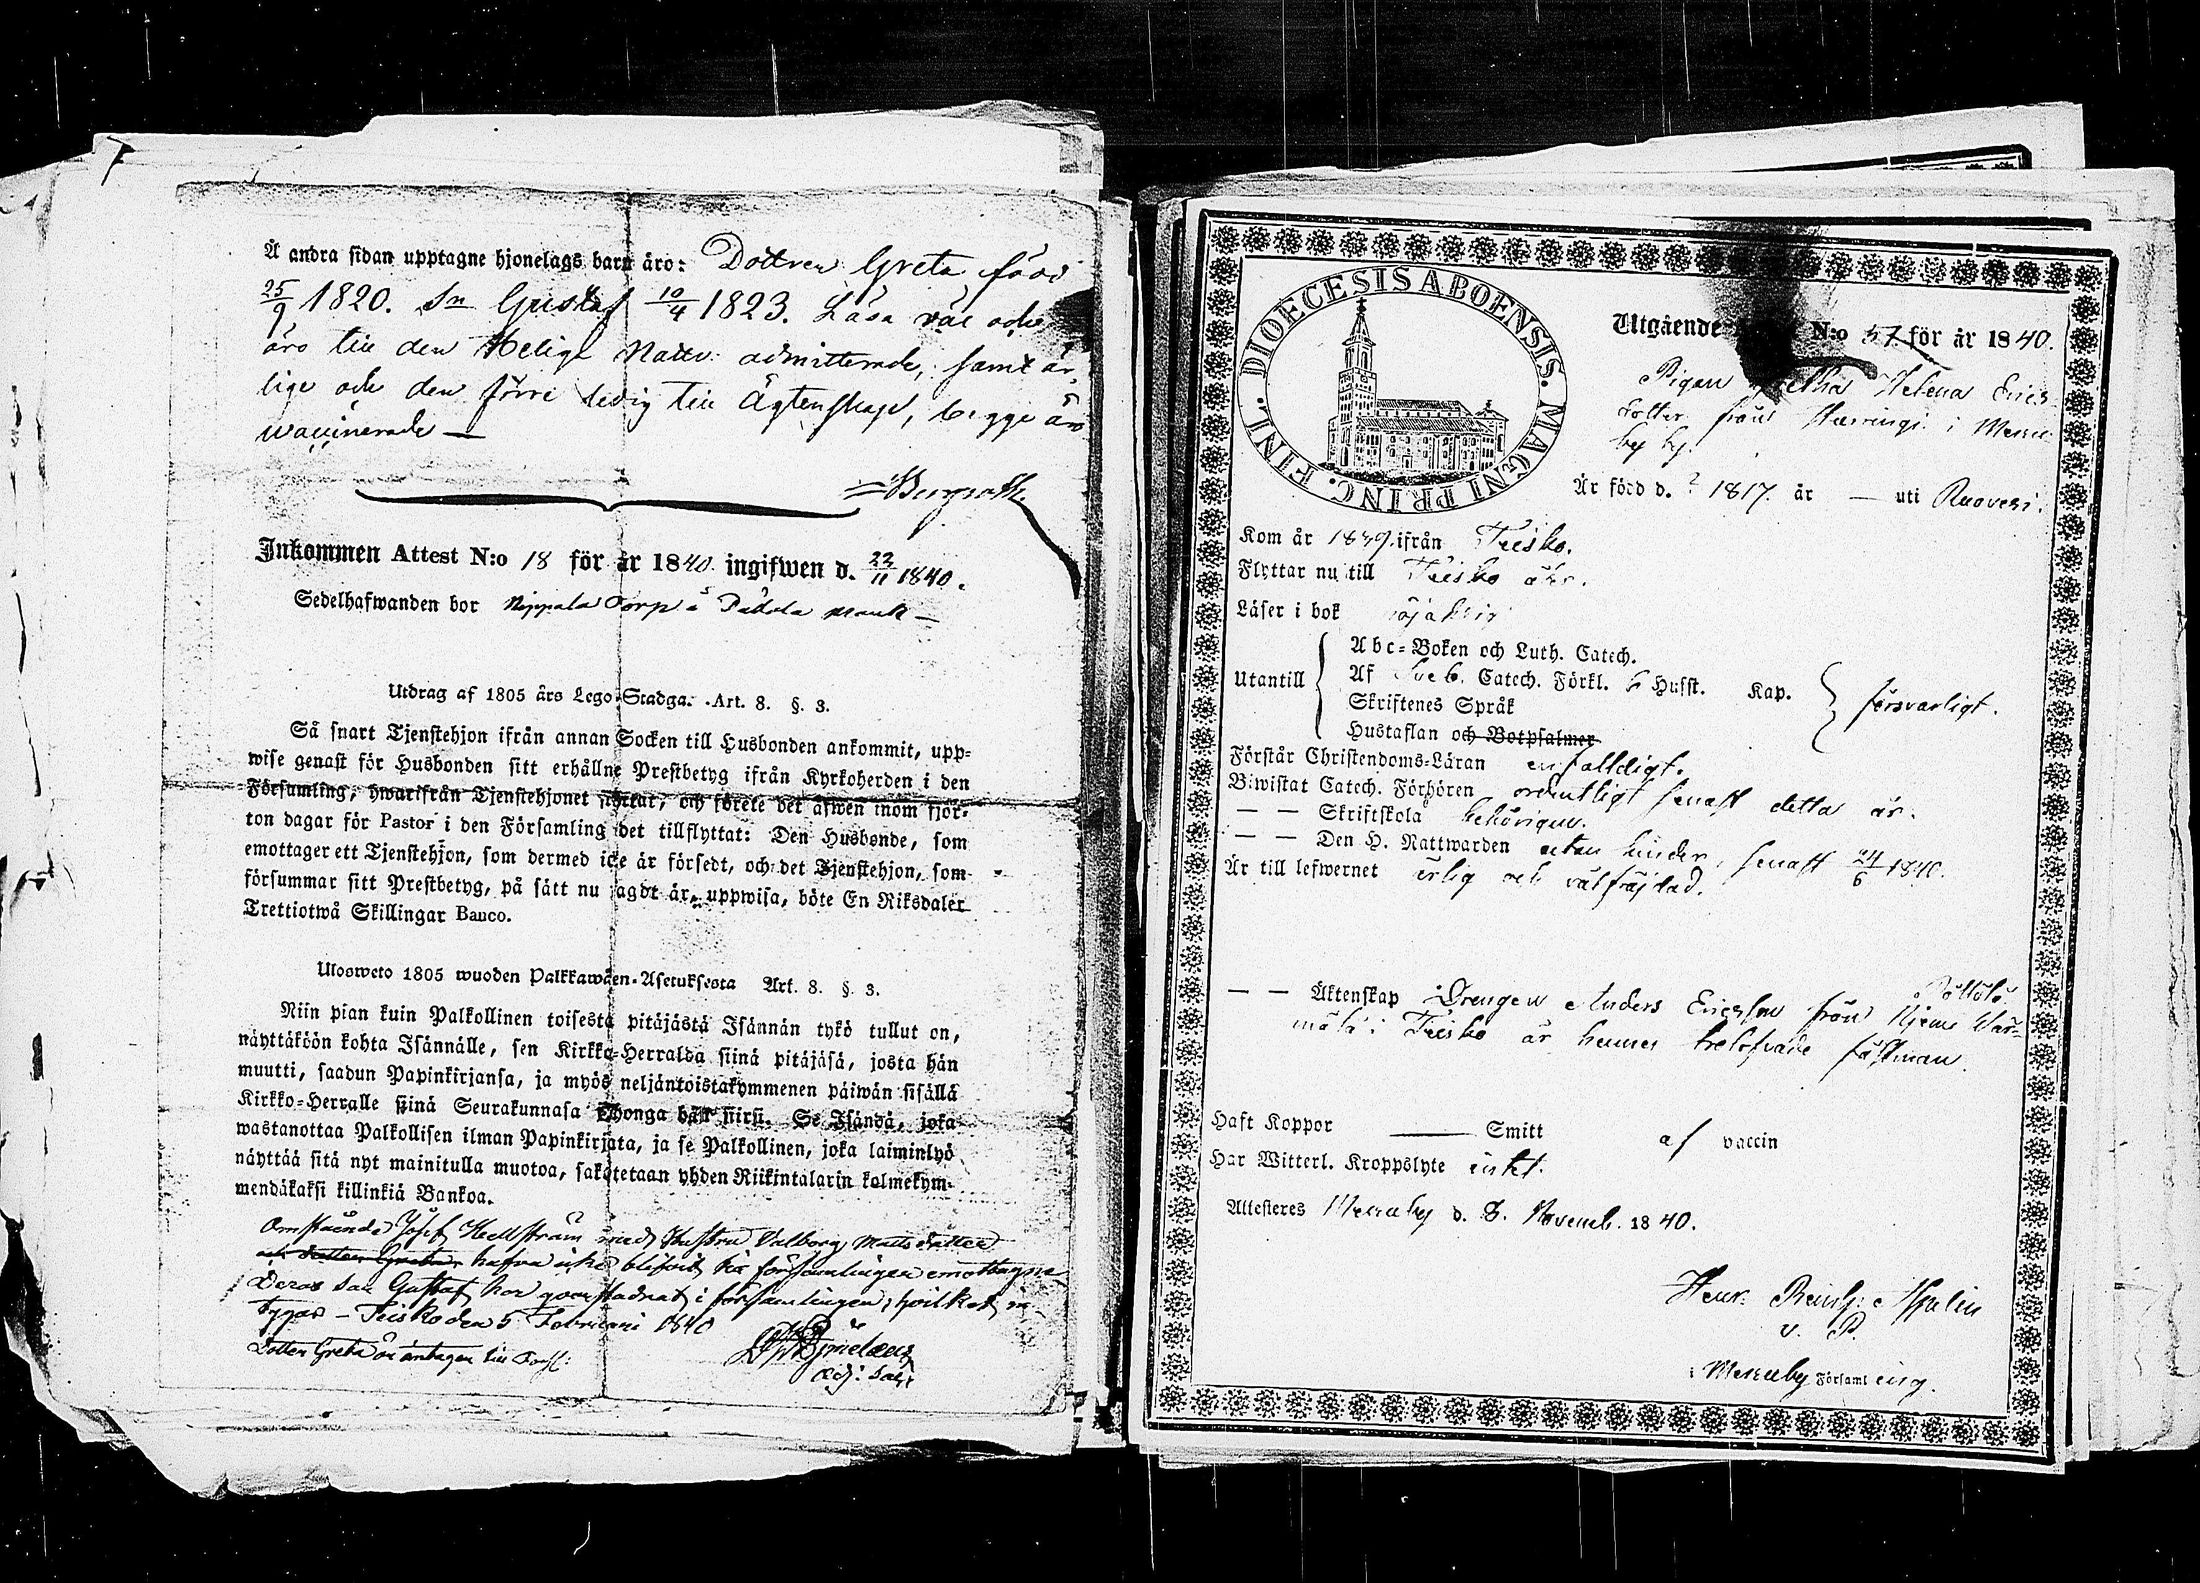 Å andra sidan upptagne hjonelags barn äro: Dottren Greta född
25/9 1820. Sn Gustaf 10/4 1823. Läsa väl och
äro till den Helige Nattv: admitterade, samt är
lige och den förre ledig till Ägtenskap, begge äro
waccinerade —
Bergroth
Inkommen Attest N:o 18 för år 1840 ingifwen d. 22/11 1840.
Sedelhafwanden bor Torp å
Utdrag af 1805 års Lego-Stadga. Art. 8. §. 3.
Så snart Tjenstehjon ifrån annan Socken till Husbonden ankommit, upp-
wise genast för Husbonden sitt erhållne Prestbetyg ifrån Kyrkoherden i den
Församling, hwarifrån Tjenstehjonet flyttat, och förete det äfwen inom fjor-
ton dagar för Pastor i den Församling det tillflyttat: Den Husbonde, som
emottager ett Tjenstehjon, som dermed icke är försedt, och det Tjenstehjon, som
försummar sitt Prestbetyg, på sätt nu sagdt är, uppwisa, böte En Riksdaler
Trettiotwå Skillingar Banco.
Ulosweto 1805 wuoden Palkkawäen-Asetuksesta Art. 8. §. 3.
Niin pian kuin Palkollinen toisesta pitäjästä Isännän tykö tullut on,
näyttäköön kohta Isännälle, sen Kirkko-Herralda siinä pitäjäsä, josta hän
muutti, saadun Papinkirjansa, ja myös neljäntoistakymmenen päiwän sisällä
Kirkko-Herralle siinä Seurakunnasa jhonga hän siirsi. Se Isändä, joka
wastanottaa Palkollisen ilman Papinkirjata, ja se Palkollinen, joka laiminlyö
näyttää sitä nyt mainitulla muotoa, sakotetaan yhden Riikintalarin kolmekym-
mendäkaksi killinkiä Bankoa.
Omstående Josef Hellström med Hustru Valborg Matsdotter
och dotter Greta hafva icke blifvit här församlingen emottagne
Deras Son Gustaf har qvarstadnat i församlingen, hvilket in-
tygas – Teisko den 5 Februari 1840
Dotter Greta är antagen till
Adj: Sac:
DIOECESIS ABOENSIS. MAGNI PRINC. FINL.
Utgående N:o 57 för år 1840.
Pigan Helena Erics-
dotter från i Messu-
by by.
Är född d. ? 1817. år — uti Ruovesi.
Kom år 1839. ifrån Teisko.
Flyttar nu till Teisko åter.
Läser i bok
Utantill
Abc-Boken och Luth. Catech.
Af Sveb. Catech. Förkl. 6 Husst. Kap.
Skriftenes Språk
Hustaflan och Botpsalmer
försvarligt.
Förstår Christendoms-Läran enfalldigt.
Biwistat Catech. Förhören ordentligt senast detta år.
— — Skriftskola behörigen.
— — Den H. Nattwarden utan hinder, senast 24/6 1840.
Är till lefwernet ärlig och välfräjdad.
— — Äktenskap Drengen Anders Ericsson från
i Teisko är hennes trolofvade fästman.
Haft Koppor —— Smitt af vaccin
Har Witterl. Kroppslyte intet.
Attesteres Messuby d. 8. Novemb. 1840.
Henr. Reinh:
v. P.
i Messuby Församling.